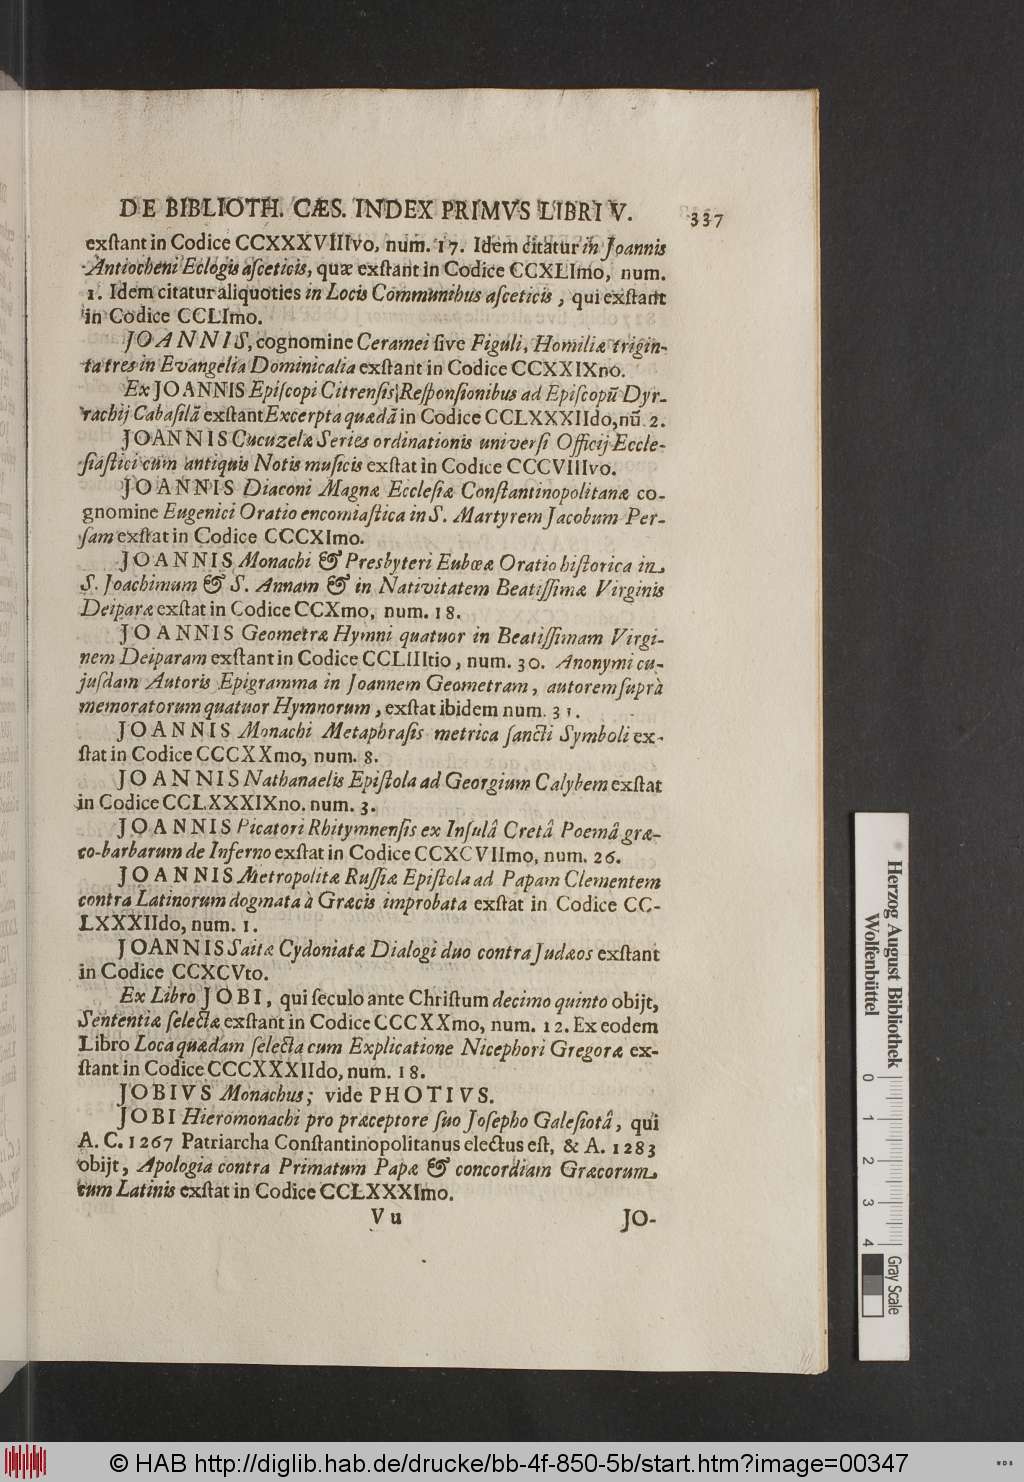 DE BIBLIOTH. CÆS. INDEX PRIMVS LIBRI V. 337
exſtant in Codice CCXXXVIIIvo, num. 17. Idem citatur in Joannis
Antiocheni Eclogis aſceticis, quæ exſtant in Codice CCXLImo, num.
1. Idem citatur aliquoties in Locis Communibus aſceticis, qui exſtant
in Codice CCLImo.
JOANNIS, cognomine Ceramei ſive Figuli, Homiliæ trigin-
ta tres in Evangelia Dominicalia exſtant in Codice CCXXIXno.
Ex JOANNIS Epiſcopi Citrenſis Reſponſionibus ad Epiſcopũ Dyr-
rachij Cabaſilã exſtant Excerpta quædã in Codice CCLXXXIIdo, nũ. 2.
JOANNIS Cucuzelæ Series ordinationis univerſi Officij Eccle-
ſiaſtici cum antiquis Notis muſicis exſtat in Codice CCCVIIIvo.
JOANNIS Diaconi Magnæ Eccleſiæ Conſtantinopolitanæ co-
gnomine Eugenici Oratio encomiaſtica in S. Martyrem Jacobum Per-
ſam exſtat in Codice CCCXImo.
JOANNIS Monachi & Presbyteri Eubœæ Oratio hiſtorica in
S. Joachimum & S. Annam & in Nativitatem Beatiſſimæ Virginis
Deiparæ exſtat in Codice CCXmo, num. 18.
JOANNIS Geometræ Hymni quatuor in Beatiſſimam Virgi-
nem Deiparam exſtant in Codice CCLIIItio, num. 30. Anonymi cu-
juſdam Autoris Epigramma in Joannem Geometram, autorem ſuprà
memoratorum quatuor Hymnorum, exſtat ibidem num. 31.
JOANNIS Monachi Metaphraſis metrica ſancti Symboli ex-
ſtat in Codice CCCXXmo, num. 8.
JOANNIS Nathanaelis Epiſtola ad Georgium Calybem exſtat
in Codice CCLXXXIXno. num. 3.
JOANNIS Picatori Rhitymnenſis ex Inſulâ Cretâ Poemâ græ-
co-barbarum de Inferno exſtat in Codice CCXCVIImo, num. 26.
JOANNIS Metropolitæ Ruſſiæ Epiſtola ad Papam Clementem
contra Latinorum dogmata à Græcis improbata exſtat in Codice CC-
LXXXIIdo, num. 1.
JOANNIS Saitæ Cydoniatæ Dialogi duo contra Judæos exſtant
in Codice CCXCVto.
Ex Libro JOBI, qui ſeculo ante Chriſtum decimo quinto obijt,
Sententiæ ſelectæ exſtant in Codice CCCXXmo, num. 12. Ex eodem
Libro Loca quædam ſelecta cum Explicatione Nicephori Gregoræ ex-
ſtant in Codice CCCXXXIIdo, num. 18.
JOBIVS Monachus; vide PHOTIVS.
JOBI Hieromonachi pro præceptore ſuo Joſepho Galeſiotâ, qui
A. C. 1267 Patriarcha Conſtantinopolitanus electus eſt, & A. 1283
obijt, Apologia contra Primatum Papæ & concordiam Græcorum
cum Latinis exſtat in Codice CCLXXXImo.
V u JO-
Herzog August Bibliothek
Wolfenbüttel
0 1 2 3 4
Gray Scale
© HAB http://diglib.hab.de/drucke/bb-4f-850-5b/start.htm?image=00347